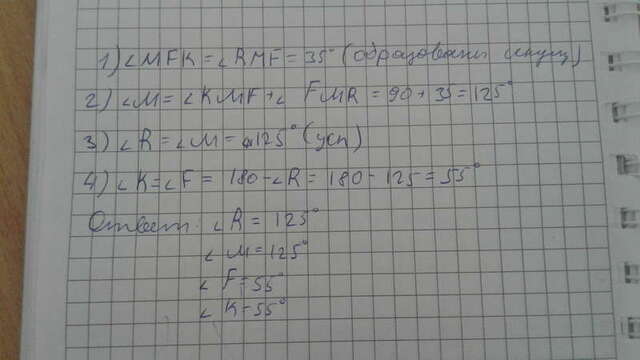 1) ∠MFK = ∠RMF = 35° (образованы секущ)
2) ∠M = ∠KMF + ∠FMR = 90 + 35 = 125°
3) ∠R = ∠M = 125° (усл)
4) ∠K = ∠F = 180 - ∠R = 180 - 125 = 55°
Ответ: ∠R = 125°
∠M = 125°
∠F = 55°
∠K = 55°